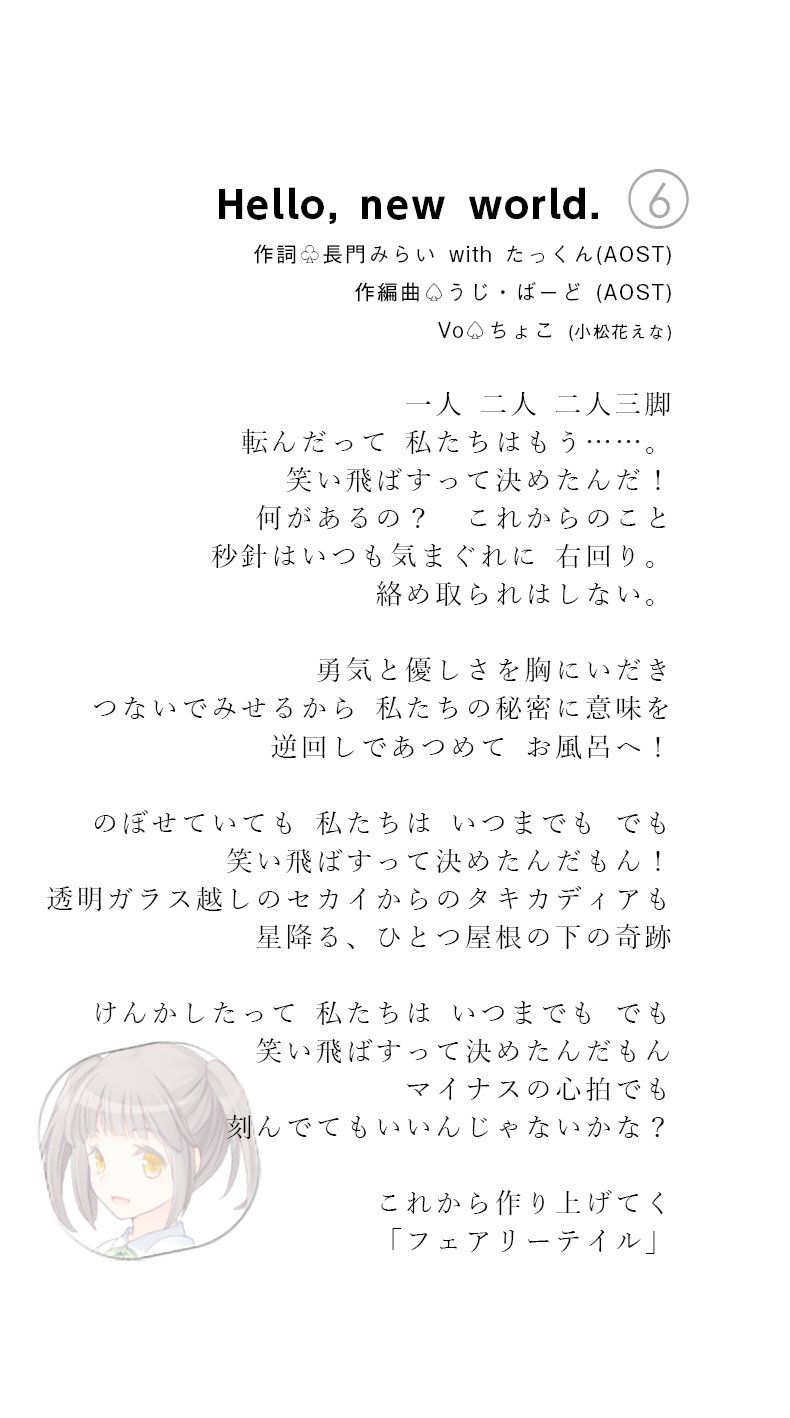 Hello, new world. ⑥
作詞♧長門みらい with たっくん(AOST)
作編曲♤うじ・ばーど (AOST)
Vo♤ちょこ (小松花えな)
一人 二人 二人三脚
転んだって 私たちはもう……。
笑い飛ばすって決めたんだ！
何があるの？　これからのこと
秒針はいつも気まぐれに 右回り。
絡め取られはしない。
勇気と優しさを胸にいだき
つないでみせるから 私たちの秘密に意味を
逆回しであつめて お風呂へ！
のぼせていても 私たちは いつまでも でも
笑い飛ばすって決めたんだもん！
透明ガラス越しのセカイからのタキカディアも
星降る、ひとつ屋根の下の奇跡
けんかしたって 私たちは いつまでも でも
笑い飛ばすって決めたんだもん
マイナスの心拍でも
刻んでてもいいんじゃないかな？
これから作り上げてく
「フェアリーテイル」